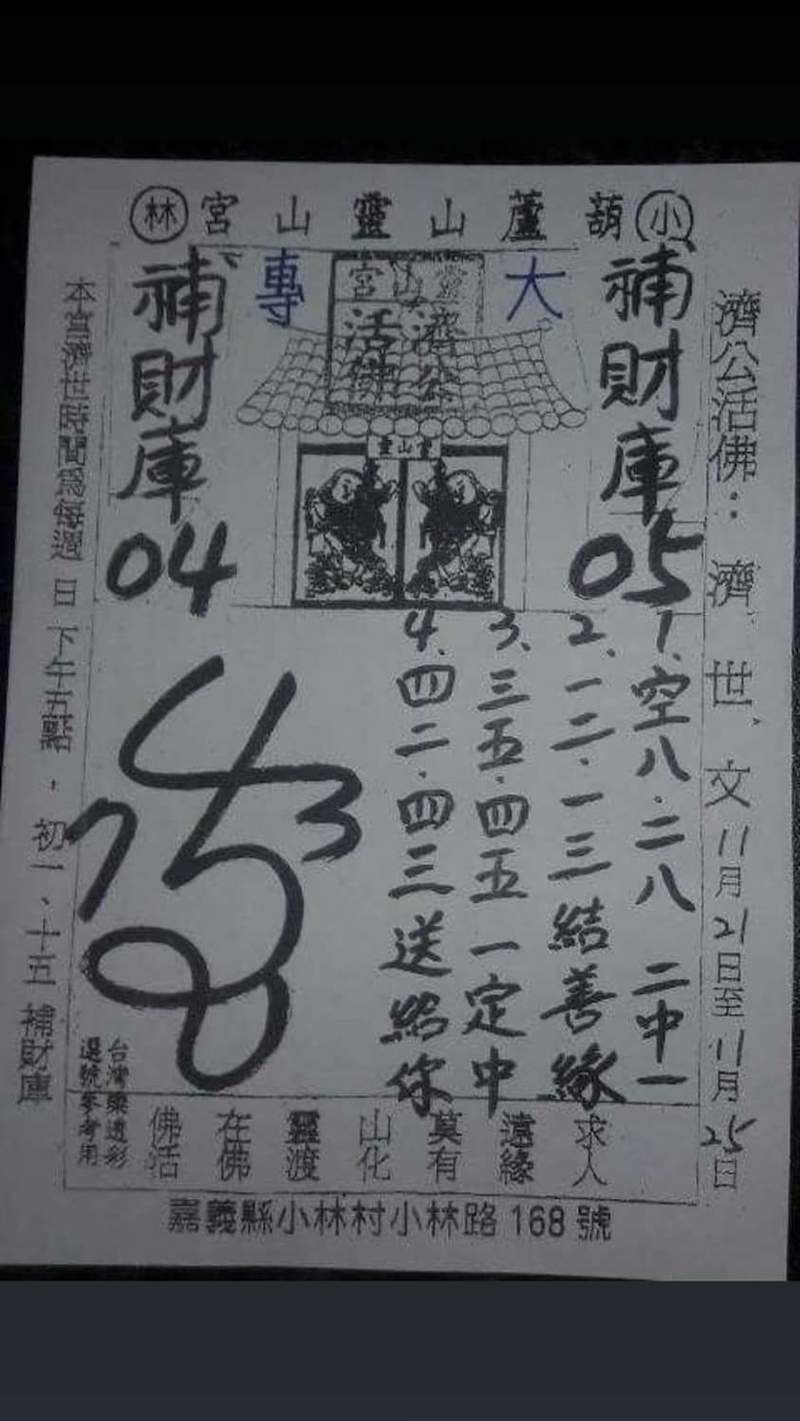 小葫蘆山靈山宮林
濟公活佛：濟世、文11月21日至11月25日
補財庫
05
大專
靈山宮
濟公
活佛
靈山宮
補財庫
04
1、空八·二八 二中一
2、一二·一三結善緣
3、三五·四五一定中
4、四二·四三送給你
4
3
7
5
8
求人
遠緣
莫有
山化
靈渡
在佛
佛活
台灣樂透彩
選號參考用
本宮濟世時間為每週日下午五點，初一、十五補財庫
嘉義縣小林村小林路168號